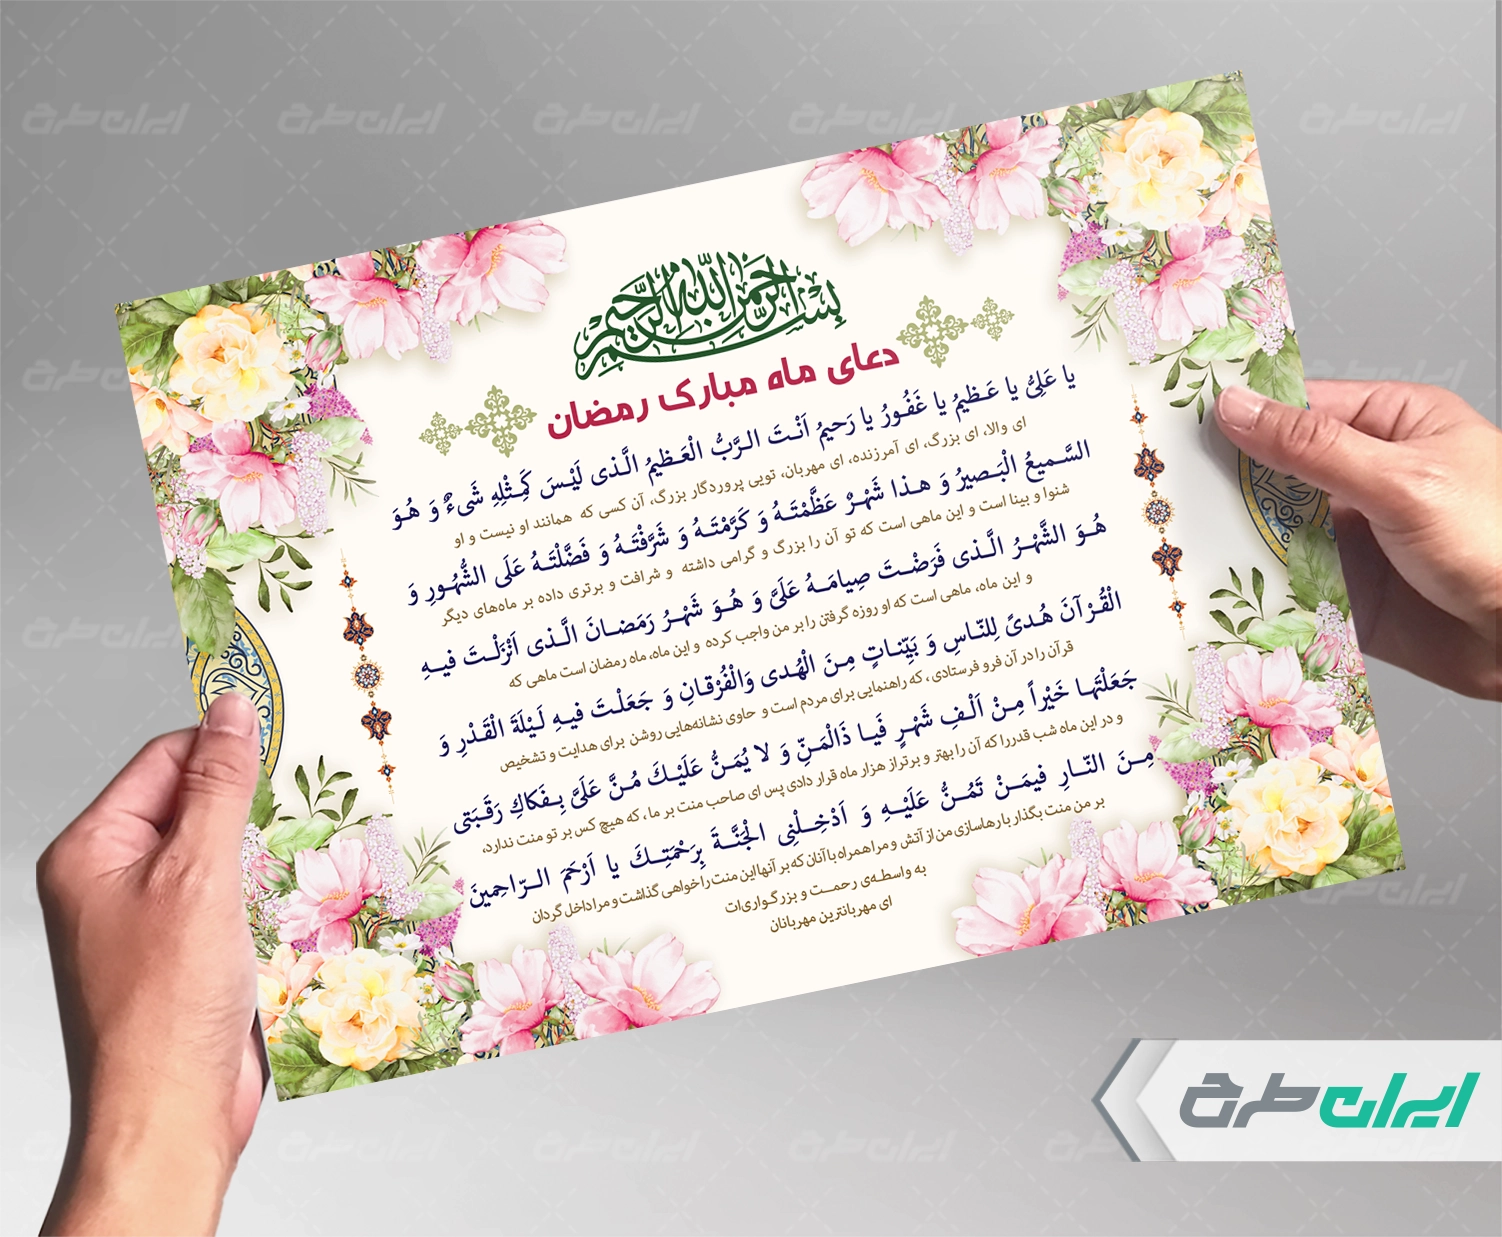 بِسْمِ اللّٰهِ الرَّحْمٰنِ الرَّحِيمِ
دعای ماه مبارک رمضان
یا عَلِیُّ یا عَـظیمُ یا غَفُـورُ یا رَحیمُ اَنْـتَ الـرَّبُّ الْعَـظیمُ الَّـذی لَیْـسَ کَمِـثْلِهِ شَیءٌ وَ هُـوَ
ای والا، ای بزرگ، ای آمرزنده، ای مهربان، تویی پروردگار بزرگ، آن کسی که همانند او نیست و او
السَّـمیعُ الْبَـصیرُ وَ هـذا شَهْـرٌ عَظَّمْتَـهُ وَ کَرَّمْتَـهُ وَ شَرَّفْتَـهُ وَ فَضَّلْتَـهُ عَلَی الشُّهُـورِ وَ
شنوا و بینا است و این ماهی است که تو آن را بزرگ و گرامی داشته و شرافت و برتری داده بر ماه‌های دیگر
هُـوَ الشَّهْـرُ الَّـذی فَرَضْـتَ صِیامَـهُ عَلَیَّ وَ هُـوَ شَهْـرُ رَمَضـانَ الَّـذی اَنْزَلْـتَ فیـهِ
و این ماه، ماهی است که او روزه گرفتن را بر من واجب کرده و این ماه، ماه رمضان است ماهی که
الْقُـرْآنَ هُـدیً لِلنّـاسِ وَ بَیِّنـاتٍ مِـنَ الْهُدی وَالْفُرْقـانِ وَ جَعَلْـتَ فیـهِ لَـیْلَةَ الْقَـدْرِ وَ
قرآن را در آن فرو فرستادی، که راهنمایی برای مردم است و حاوی نشانه‌هایی روشن برای هدایت و تشخیص
جَعَلْتَهـا خَیْراً مِـنْ اَلْـفِ شَهْـرٍ فَیـا ذَالْمَـنِّ وَ لا یُمَـنُّ عَلَیْـكَ مُـنَّ عَلَیَّ بِـفَکاكِ رَقَـبَتی
و در این ماه شب قدر را که آن را بهتر و برتر از هزار ماه قرار دادی پس ای صاحب منت بر ما، که هیچ کس بر تو منت ندارد،
مِـنَ النّـارِ فیمَـنْ تَمُـنُّ عَلَیْـهِ وَ اَدْخِـلْنِی الْجَنَّـةَ بِرَحْمَتِـكَ یا اَرْحَمَ الـرّاحِمینَ
بر من منت بگذار با رهاسازی من از آتش و مرا همراه با آنان که بر آنها این منت را خواهی گذاشت و مرا داخل گردان
به واسطـه‌ی رحمـت و بزرگـواری‌ات
ای مهربانترین مهربانان
ایران طرح